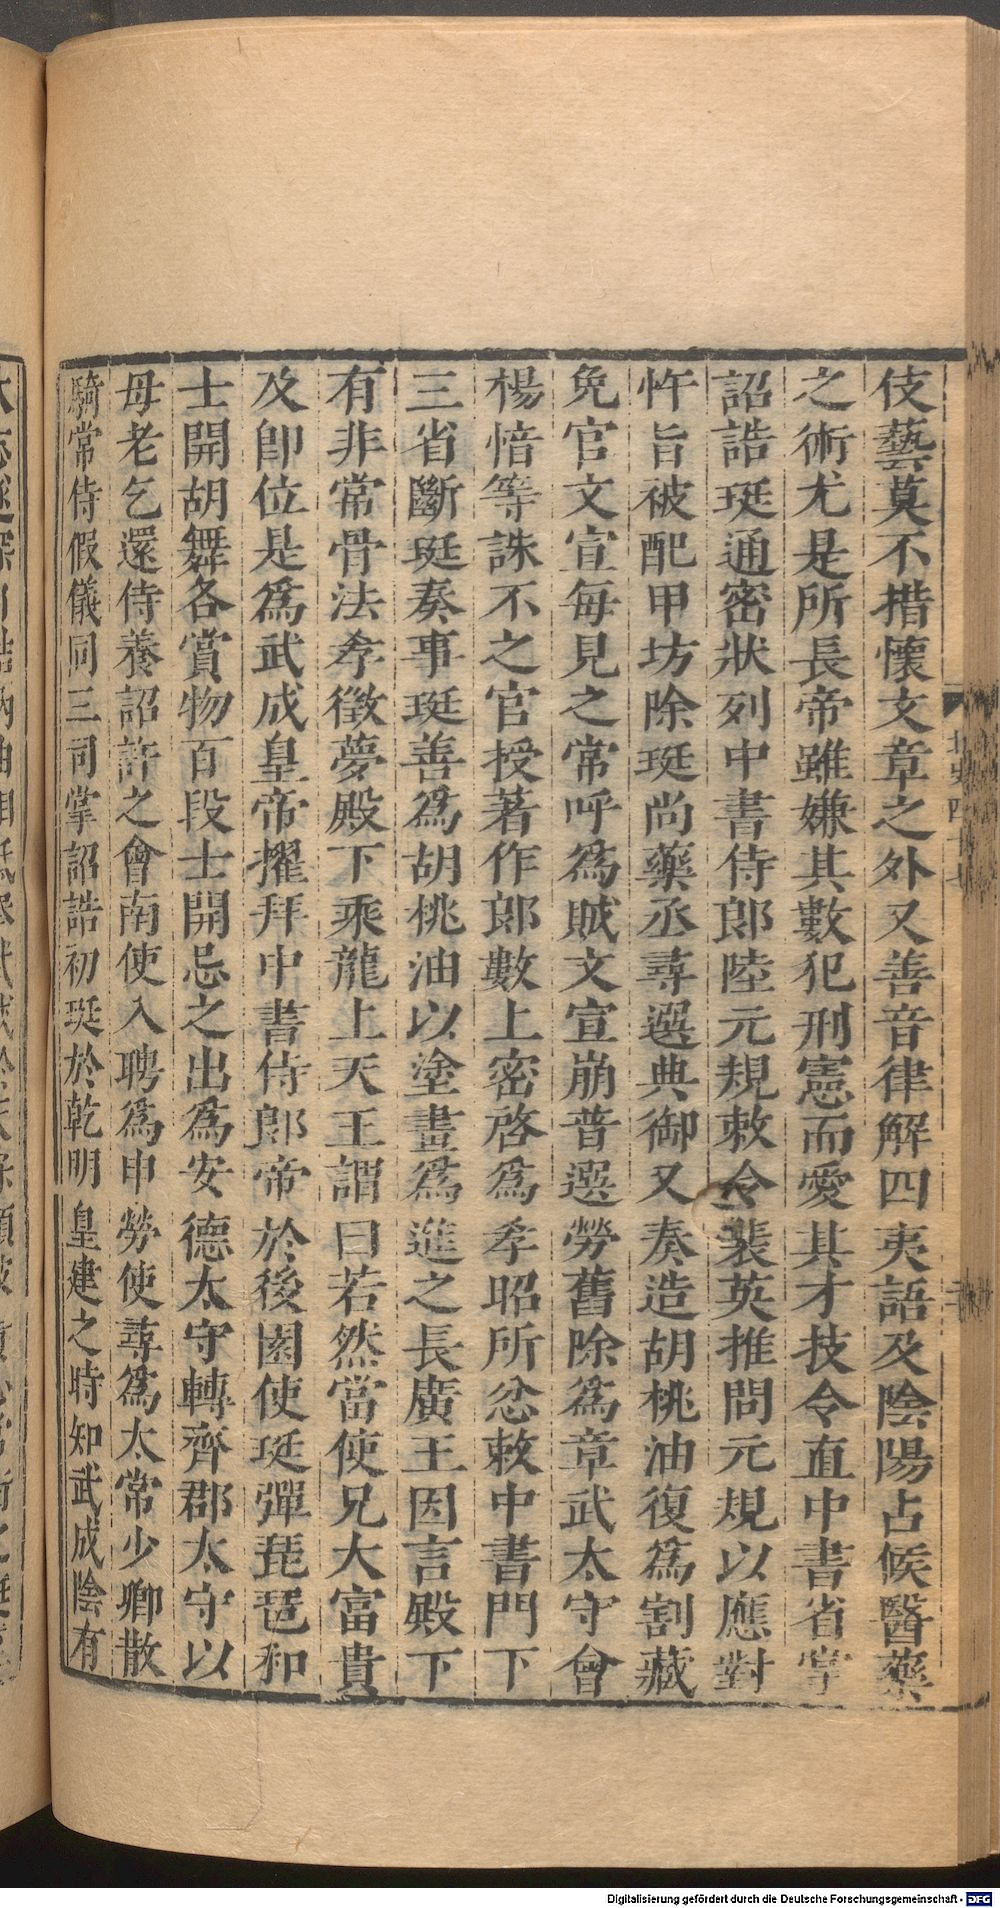 伎藝莫不措懷文章之外又善音律解四夷語及陰陽占候醫藥
之術尤是所長帝雖嫌其數犯刑憲而愛其才技令直中書省掌
詔誥珽通密狀列中書侍郎陸元規敕令裴英推問元規以應對
忤旨被配甲坊除珽尚藥丞尋選典御又奏造胡桃油復為割藏
免官文宣每見之常呼為賊文宣崩普選勞舊除為章武太守會
楊愔等誅不之官授著作郎數上密啓為孝昭所忿敕中書門下
三省斷珽奏事珽善為胡桃油以塗畫為進之長廣王因言殿下
有非常骨法孝徵夢殿下乘龍上天王謂曰若然當使兄大富貴
及卽位是為武成皇帝擢拜中書侍郎帝於後園使珽彈琵琶和
士開胡舞各賞物百段士開忌之出為安德太守轉齊郡太守以
母老乞還侍養詔許之會南使入聘為申勞使尋為太常少卿散
騎常侍假儀同三司掌詔誥初珽於乾明皇建之時知武成陰有
Digitalisierung gefördert durch die Deutsche Forschungsgemeinschaft - DFG